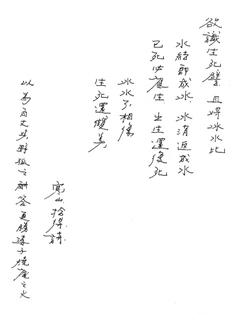 欲識生死譬 且將冰水比
水結即成冰 冰消返成水
已死必應生 出生還復死
冰水不相傷
生死還雙美
寒山拾得詩
以為百丈野狐之解答 更勝婆子燒庵之火